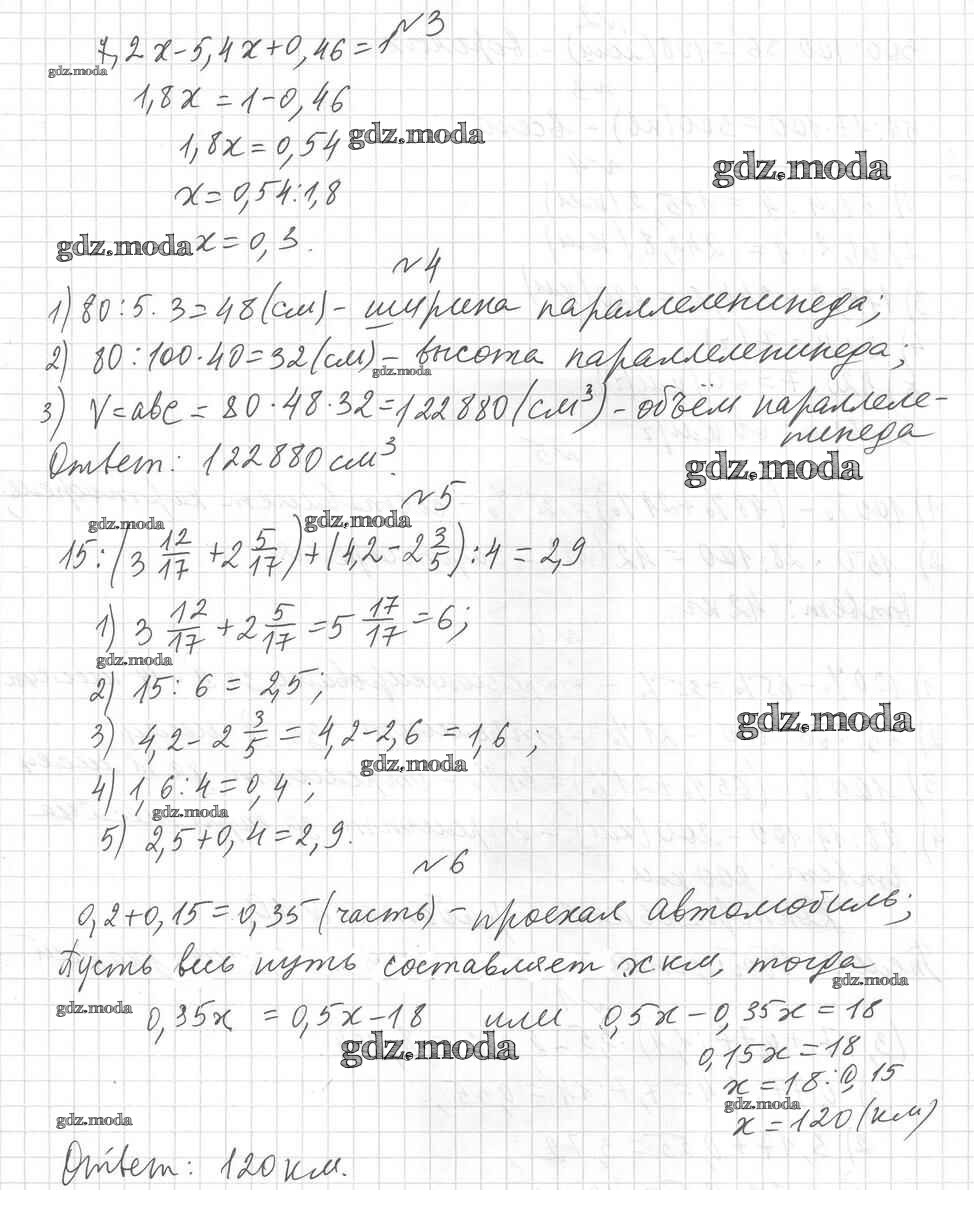 №3
7,2x-5,4x+0,46=1
gdz.moda
1,8x=1-0,46
1,8x=0,54 gdz.moda
gdz.moda
x=0,54:1,8
gdz.moda x=0,3.
№4
1) 80:5·3=48(см)- ширина параллелепипеда;
2) 80:100·40=32(см)- высота параллелепипеда;
gdz.moda
3) V=abc=80·48·32=122880(см³)-объём параллеле-
пипеда
Ответ: 122880см³.
gdz.moda
№5
gdz.moda gdz.moda
15:(3 12/17 +2 5/17)+(4,2-2 3/5):4=2,9
1) 3 12/17+2 5/17=5 17/17=6;
gdz.moda
2) 15:6=2,5;
3) 4,2-2 3/5=4,2-2,6=1,6;
gdz.moda
gdz.moda
4) 1,6:4=0,4;
gdz.moda
5) 2,5+0,4=2,9.
№6
0,2+0,15=0,35(часть)-проехал автомобиль;
Пусть весь путь составляет x км, тогда
gdz.moda
gdz.moda 0,35x=0,5x-18 или 0,5x-0,35x=18
gdz.moda
0,15x=18
x=18:0,15
gdz.moda
x=120(км)
gdz.moda
Ответ: 120км.